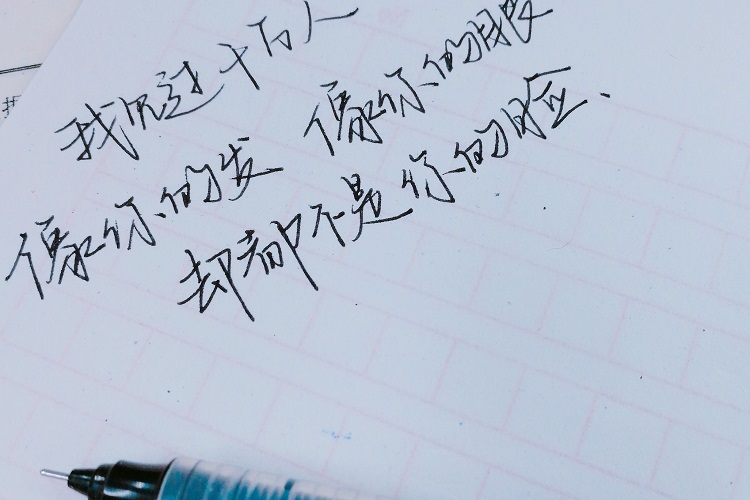 我见过千万人
像你的发 像你的眼
却都不是你的脸.